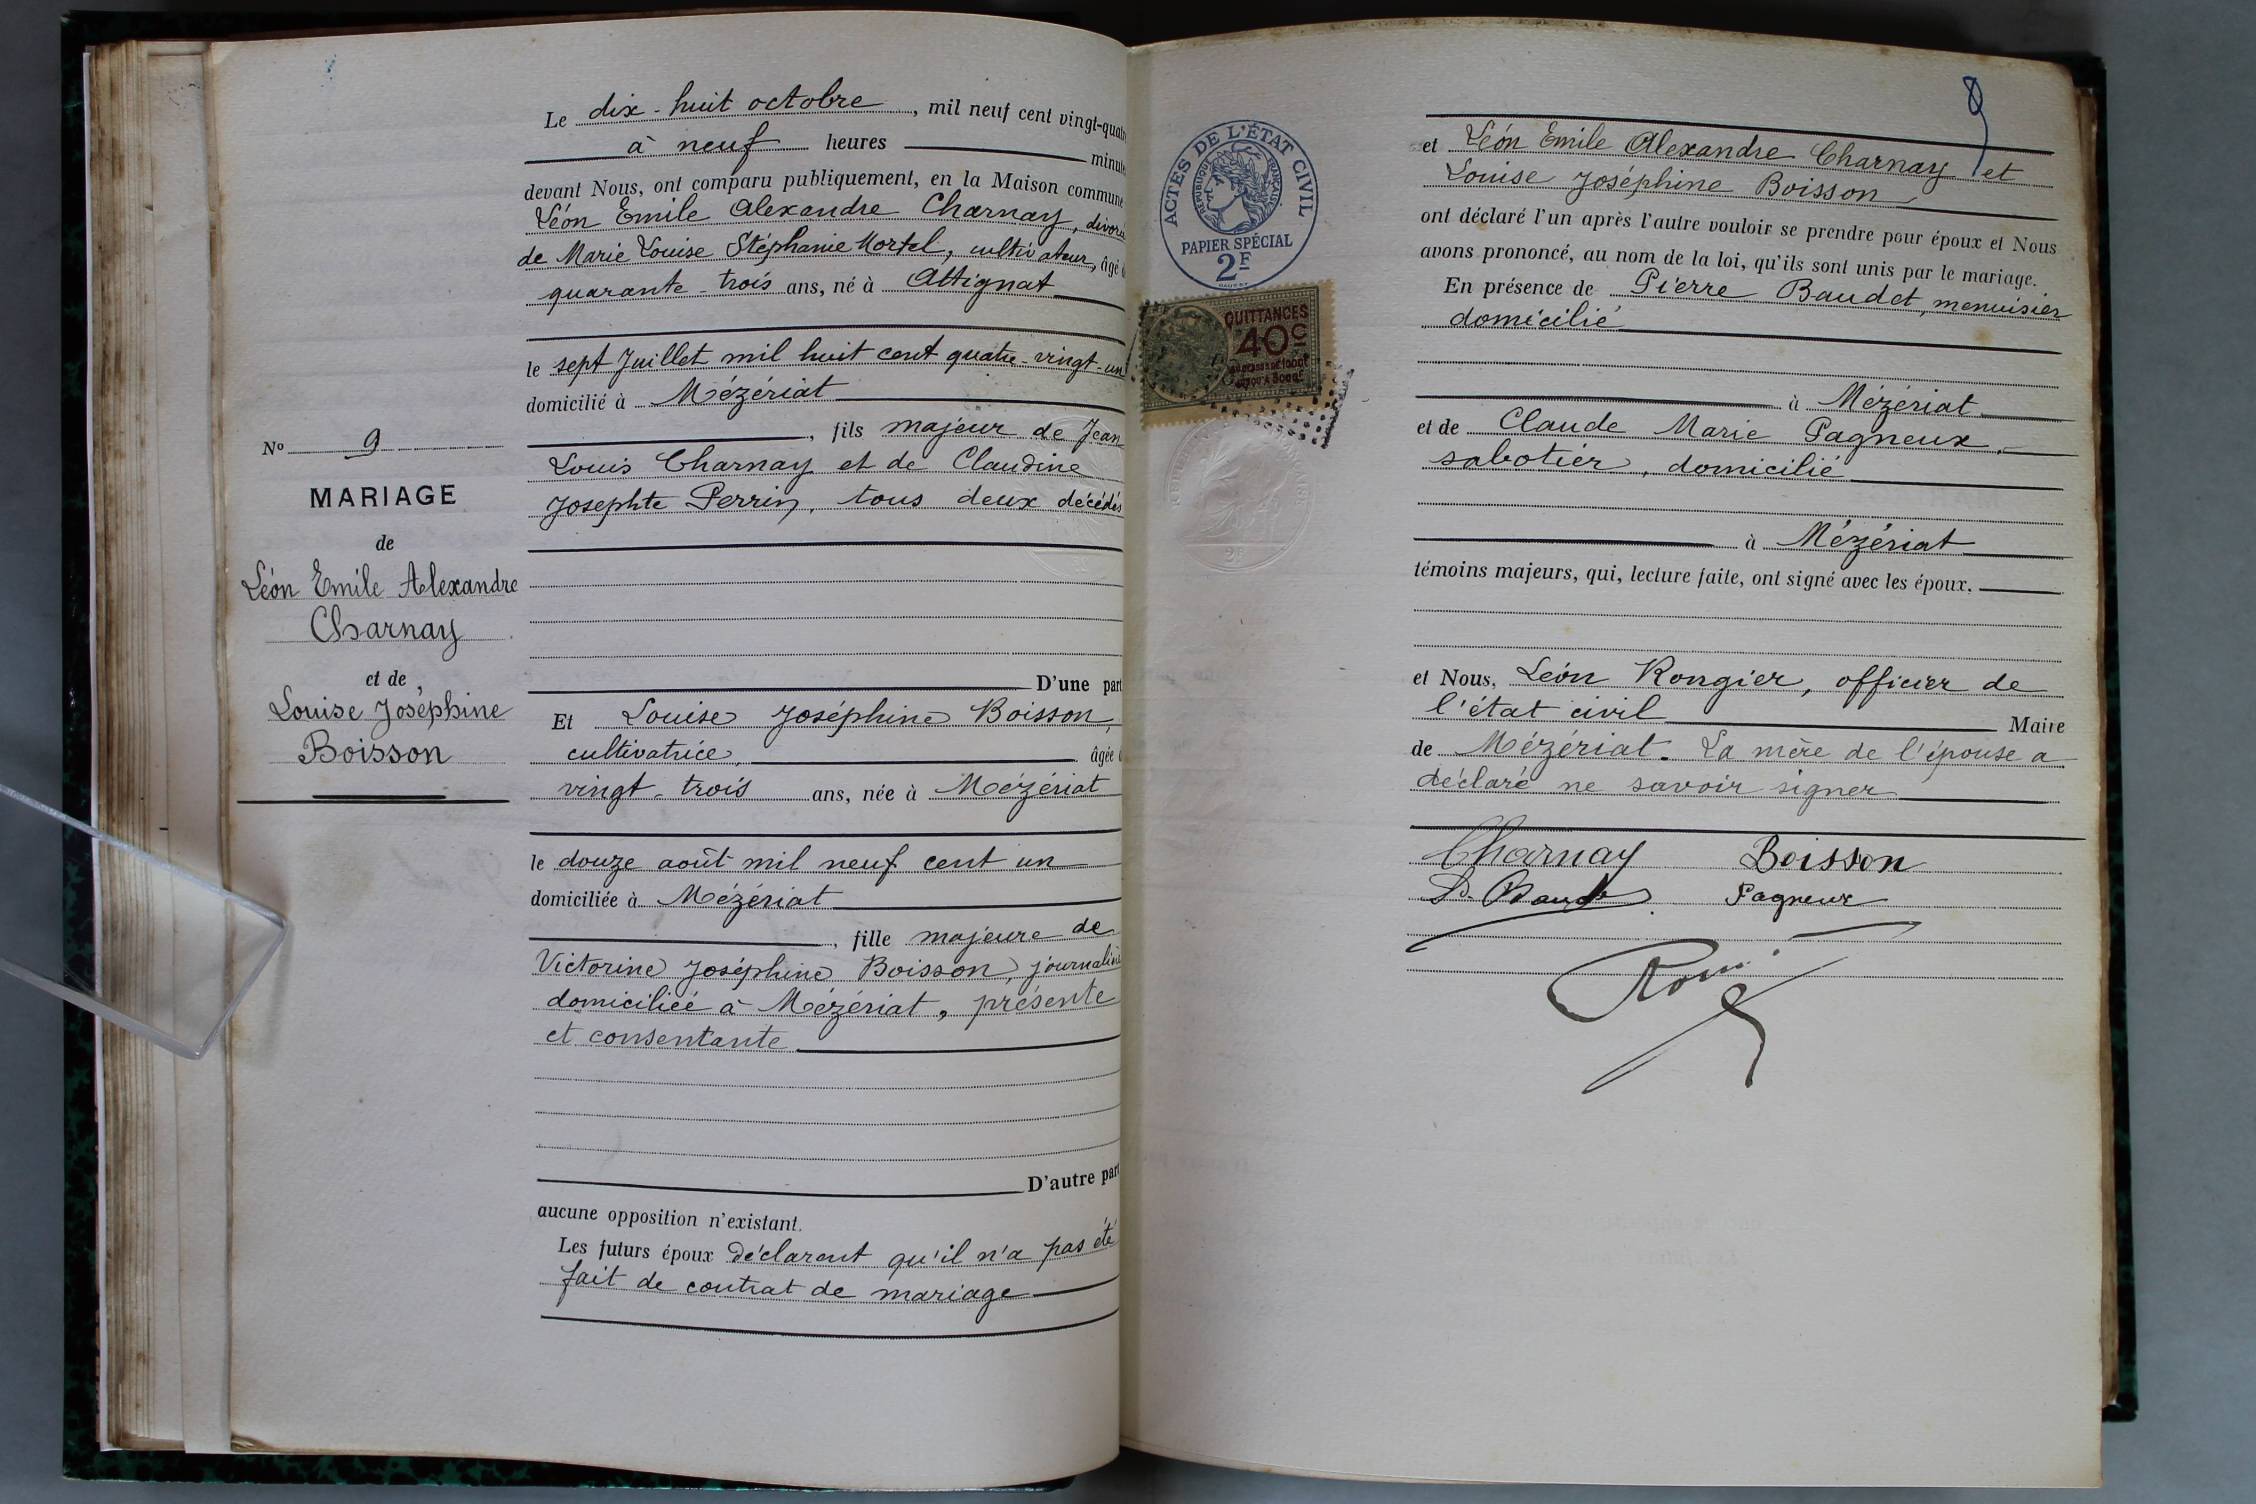 Le dix-huit octobre, mil neuf cent vingt-quatre
à neuf heures minutes
devant Nous, ont comparu publiquement, en la Maison commune
Léon Emile Alexandre Charnay, divorcé
de Marie Louise Stéphanie Mortel, cultivateur, âgé
quarante-trois ans, né à Attignat
le sept Juillet mil huit cent quatre-vingt-un
domicilié à Mézériat
N° 9
, fils majeur de Jean
Louis Charnay et de Claudine
Josephte Perrin, tous deux décédés
MARIAGE
de
Léon Emile Alexandre
Charnay
et de
Louise Joséphine
Boisson
D'une part
Et Louise Joséphine Boisson,
cultivatrice, âgée
vingt-trois ans, née à Mézériat
le douze août mil neuf cent un
domiciliée à Mézériat
, fille majeure de
Victorine Joséphine Boisson, journalière
domiciliée à Mézériat, présente
et consentante
D'autre part
aucune opposition n'existant.
Les futurs époux déclarent qu'il n'a pas été
fait de contrat de mariage
ACTES DE L'ÉTAT CIVIL
RÉPUBLIQUE FRANÇAISE
PAPIER SPÉCIAL
2F
QUITTANCES
40c
et Léon Emile Alexandre Charnay et
Louise Joséphine Boisson
ont déclaré l'un après l'autre vouloir se prendre pour époux et Nous
avons prononcé, au nom de la loi, qu'ils sont unis par le mariage.
En présence de Pierre Baudet, menuisier
domicilié
à Mézériat
et de Claude Marie Pagneux,
sabotier, domicilié
à Mézériat
témoins majeurs, qui, lecture faite, ont signé avec les époux.
et Nous, Léon Rongier, officier de
l'état civil Maire
de Mézériat. La mère de l'épouse a
déclaré ne savoir signer
Charnay Boisson
Pagneux